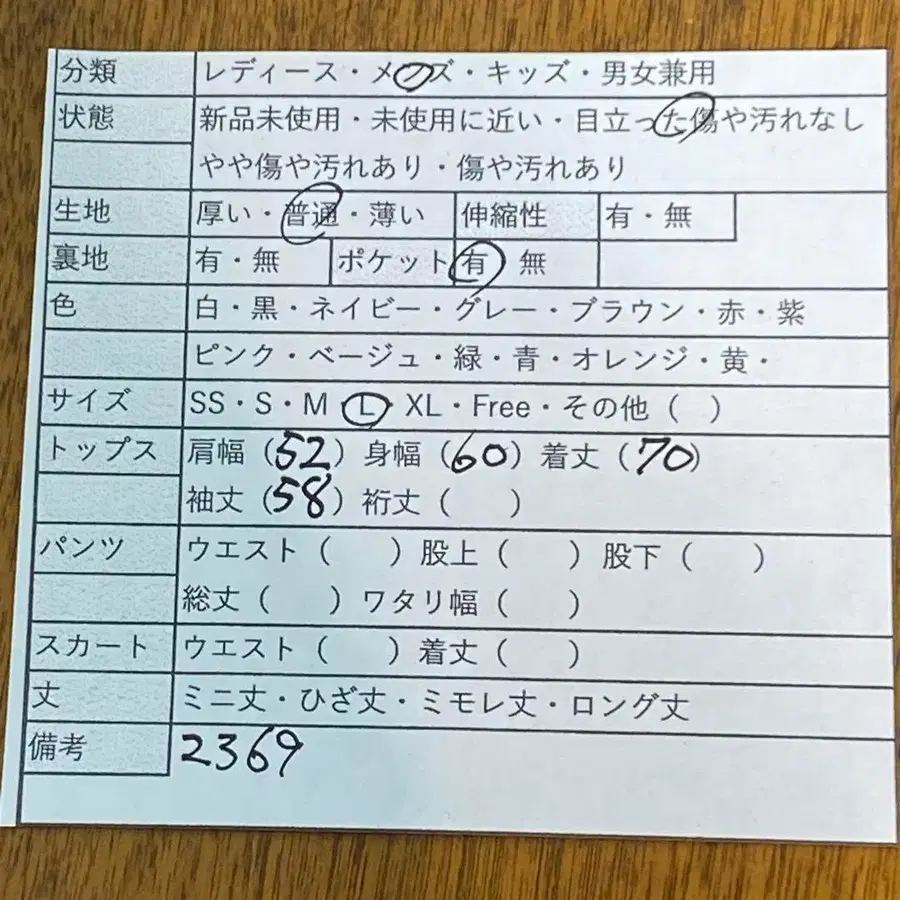 分類 レディース・メンズ・キッズ・男女兼用
状態 新品未使用・未使用に近い・目立った傷や汚れなし
やや傷や汚れあり・傷や汚れあり
生地 厚い・普通・薄い 伸縮性 有・無
裏地 有・無 ポケット 有 無
色 白・黒・ネイビー・グレー・ブラウン・赤・紫
ピンク・ベージュ・緑・青・オレンジ・黄・
サイズ SS・S・M L・XL・Free・その他( )
トップス 肩幅(52)身幅(60)着丈(70)
袖丈(58)裄丈( )
パンツ ウエスト( )股上( )股下( )
総丈( )ワタリ幅( )
スカート ウエスト( )着丈( )
丈 ミニ丈・ひざ丈・ミモレ丈・ロング丈
備考 2369